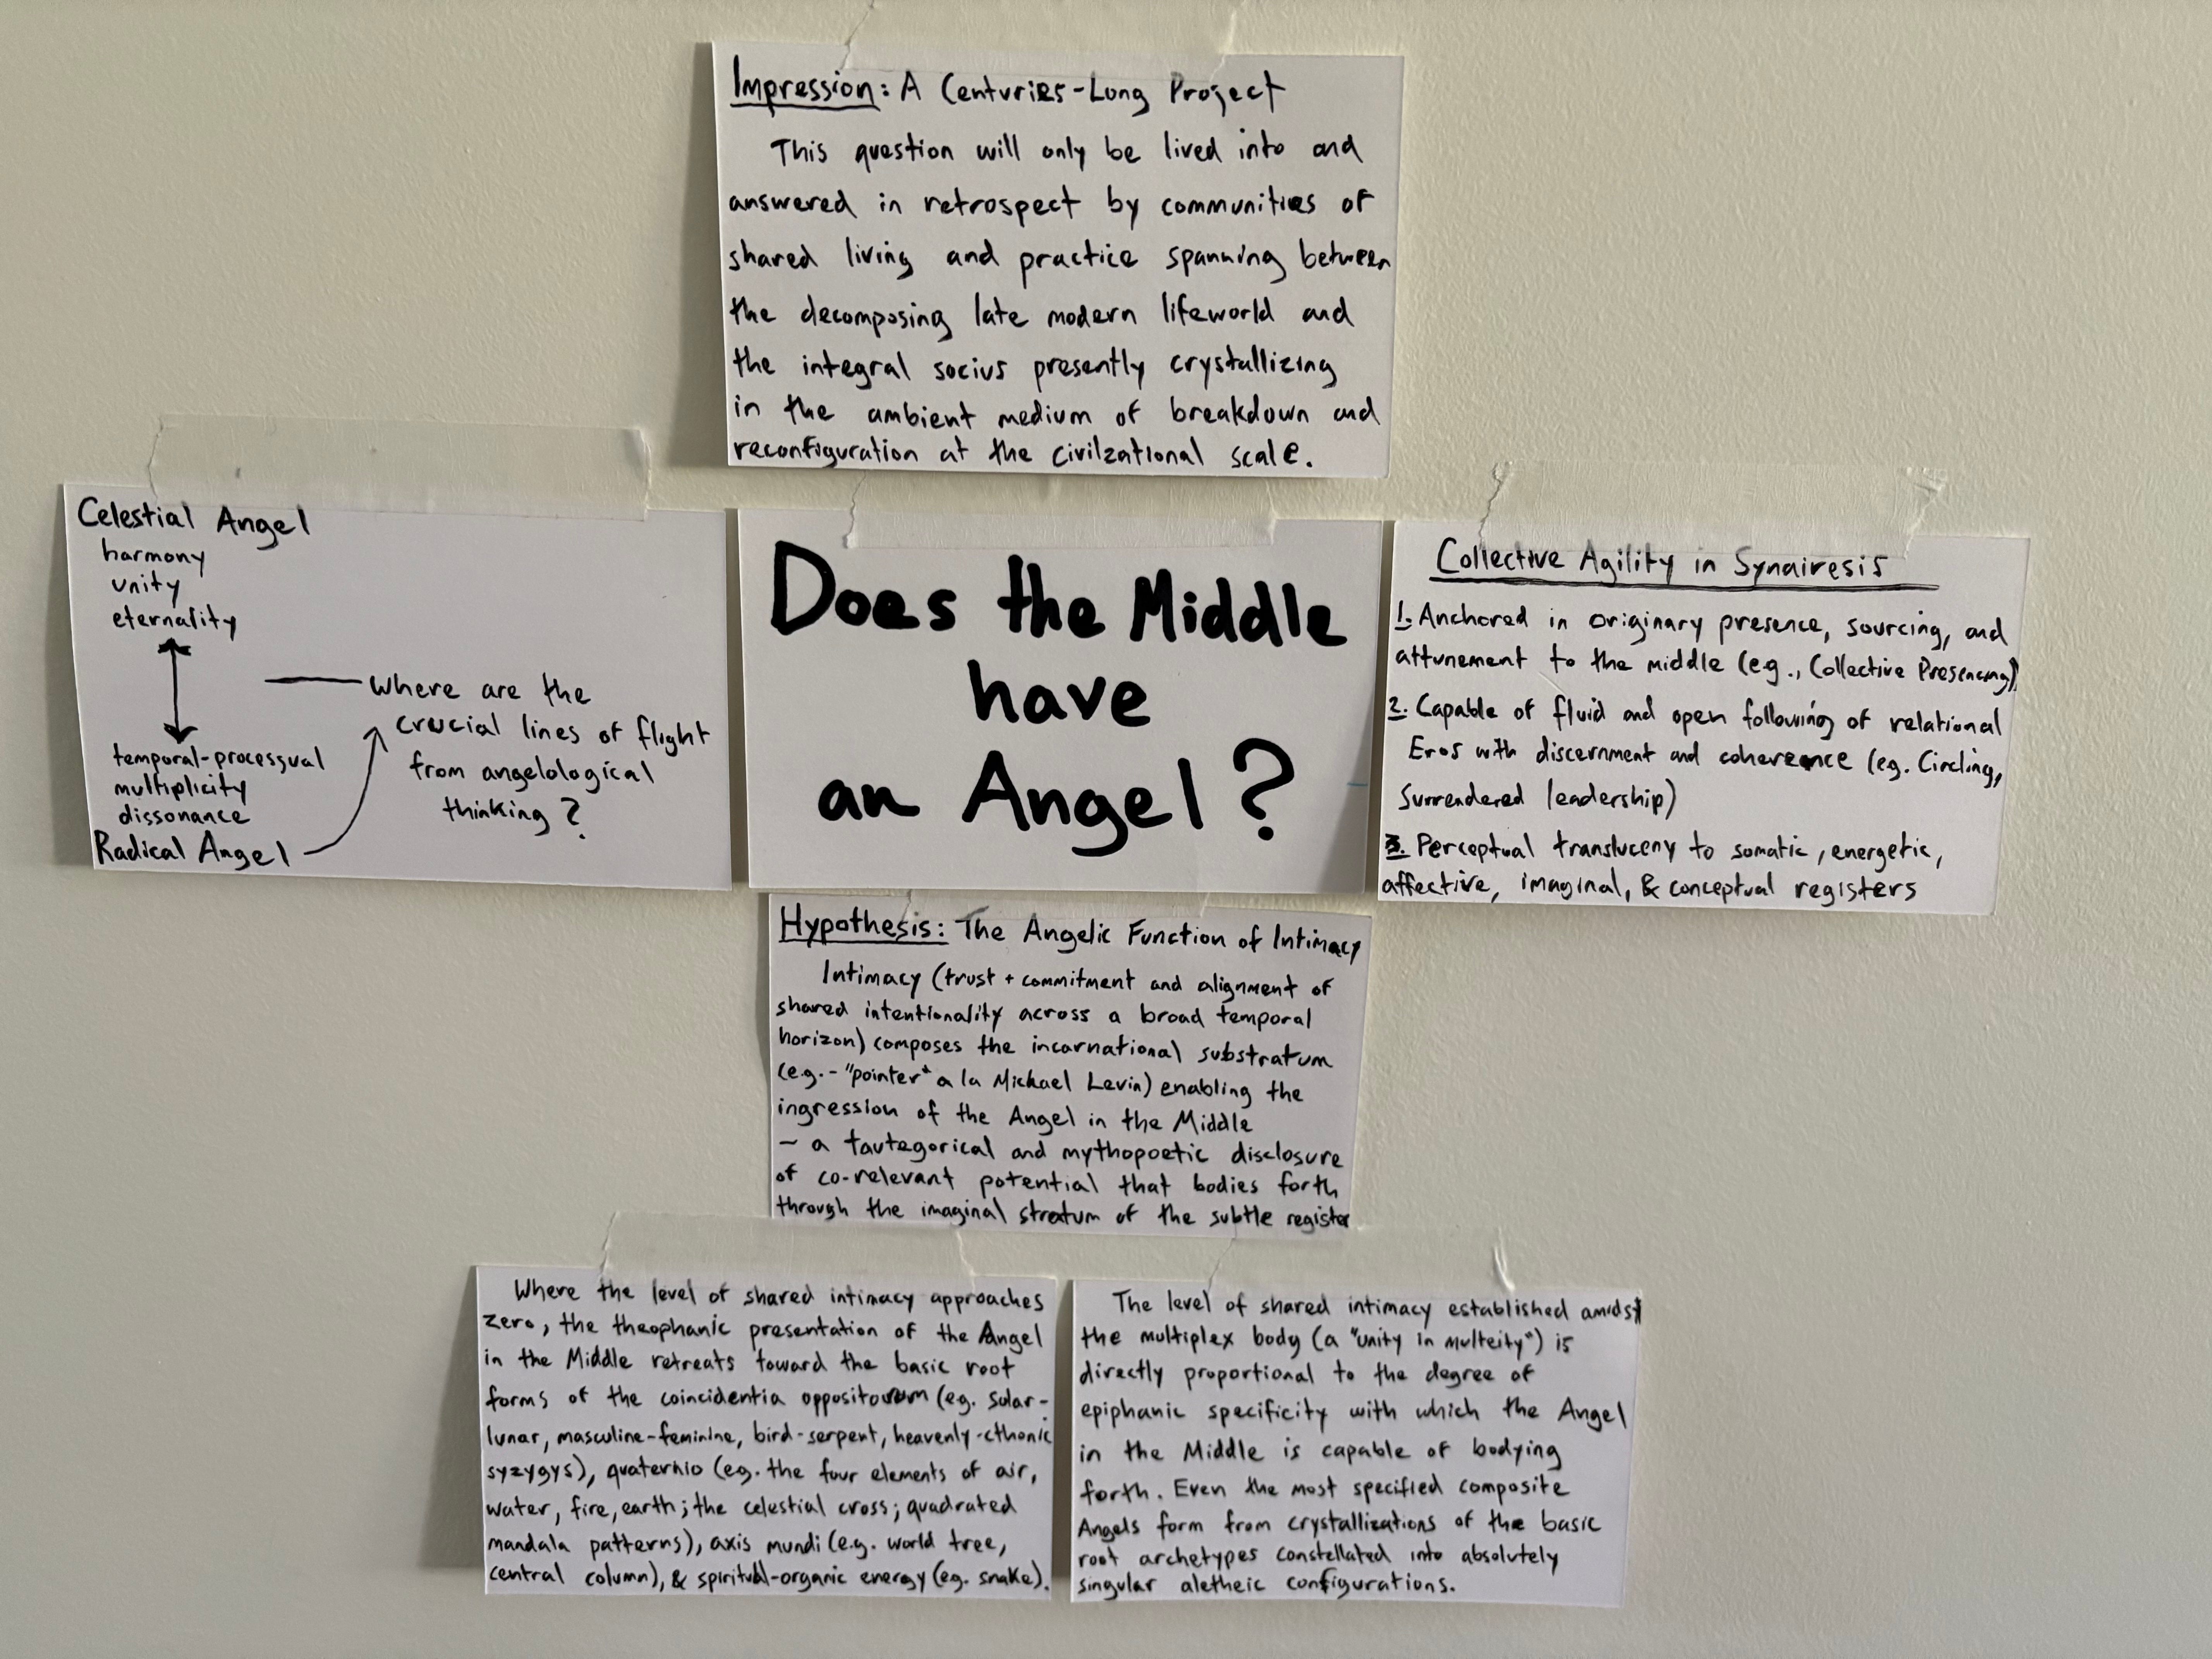 Impression: A Centuries-Long Project
This question will only be lived into and
answered in retrospect by communities of
shared living and practice spanning between
the decomposing late modern lifeworld and
the integral socius presently crystallizing
in the ambient medium of breakdown and
reconfiguration at the civilzational scale.
Celestial Angel
harmony
unity
eternality
temporal-processual
multiplicity
dissonance
Radical Angel
where are the
crucial lines of flight
from angelological
thinking?
Does the Middle
have
an Angel?
Collective Agility in Synairesis
1. Anchored in originary presence, sourcing, and
attunement to the middle (e.g., Collective Presencing)
2. Capable of fluid and open following of relational
Eros with discernment and coherence (eg. Circling,
Surrendered leadership)
3. Perceptual transluceny to somatic, energetic,
affective, imaginal, & conceptual registers
Hypothesis: The Angelic Function of Intimacy
Intimacy (trust + commitment and alignment of
shared intentionality across a broad temporal
horizon) composes the incarnational substratum
(e.g.- "pointer" a la Michael Levin) enabling the
ingression of the Angel in the Middle
~ a tautegorical and mythopoetic disclosure
of co-relevant potential that bodies forth
through the imaginal stratum of the subtle register
Where the level of shared intimacy approaches
zero, the theophanic presentation of the Angel
in the Middle retreats toward the basic root
forms of the coincidentia oppositorum (eg. Solar-
lunar, masculine-feminine, bird-serpent, heavenly-cthonic
syzygys), quaternio (eg. the four elements of air,
water, fire, earth; the celestial cross; quadrated
mandala patterns), axis mundi (e.g. world tree,
central column), & spiritual-organic energy (eg. snake).
The level of shared intimacy established amidst
the multiplex body (a "unity in multeity") is
directly proportional to the degree of
epiphanic specificity with which the Angel
in the Middle is capable of bodying
forth. Even the most specified composite
Angels form from crystallizations of the basic
root archetypes constellated into absolutely
singular aletheic configurations.